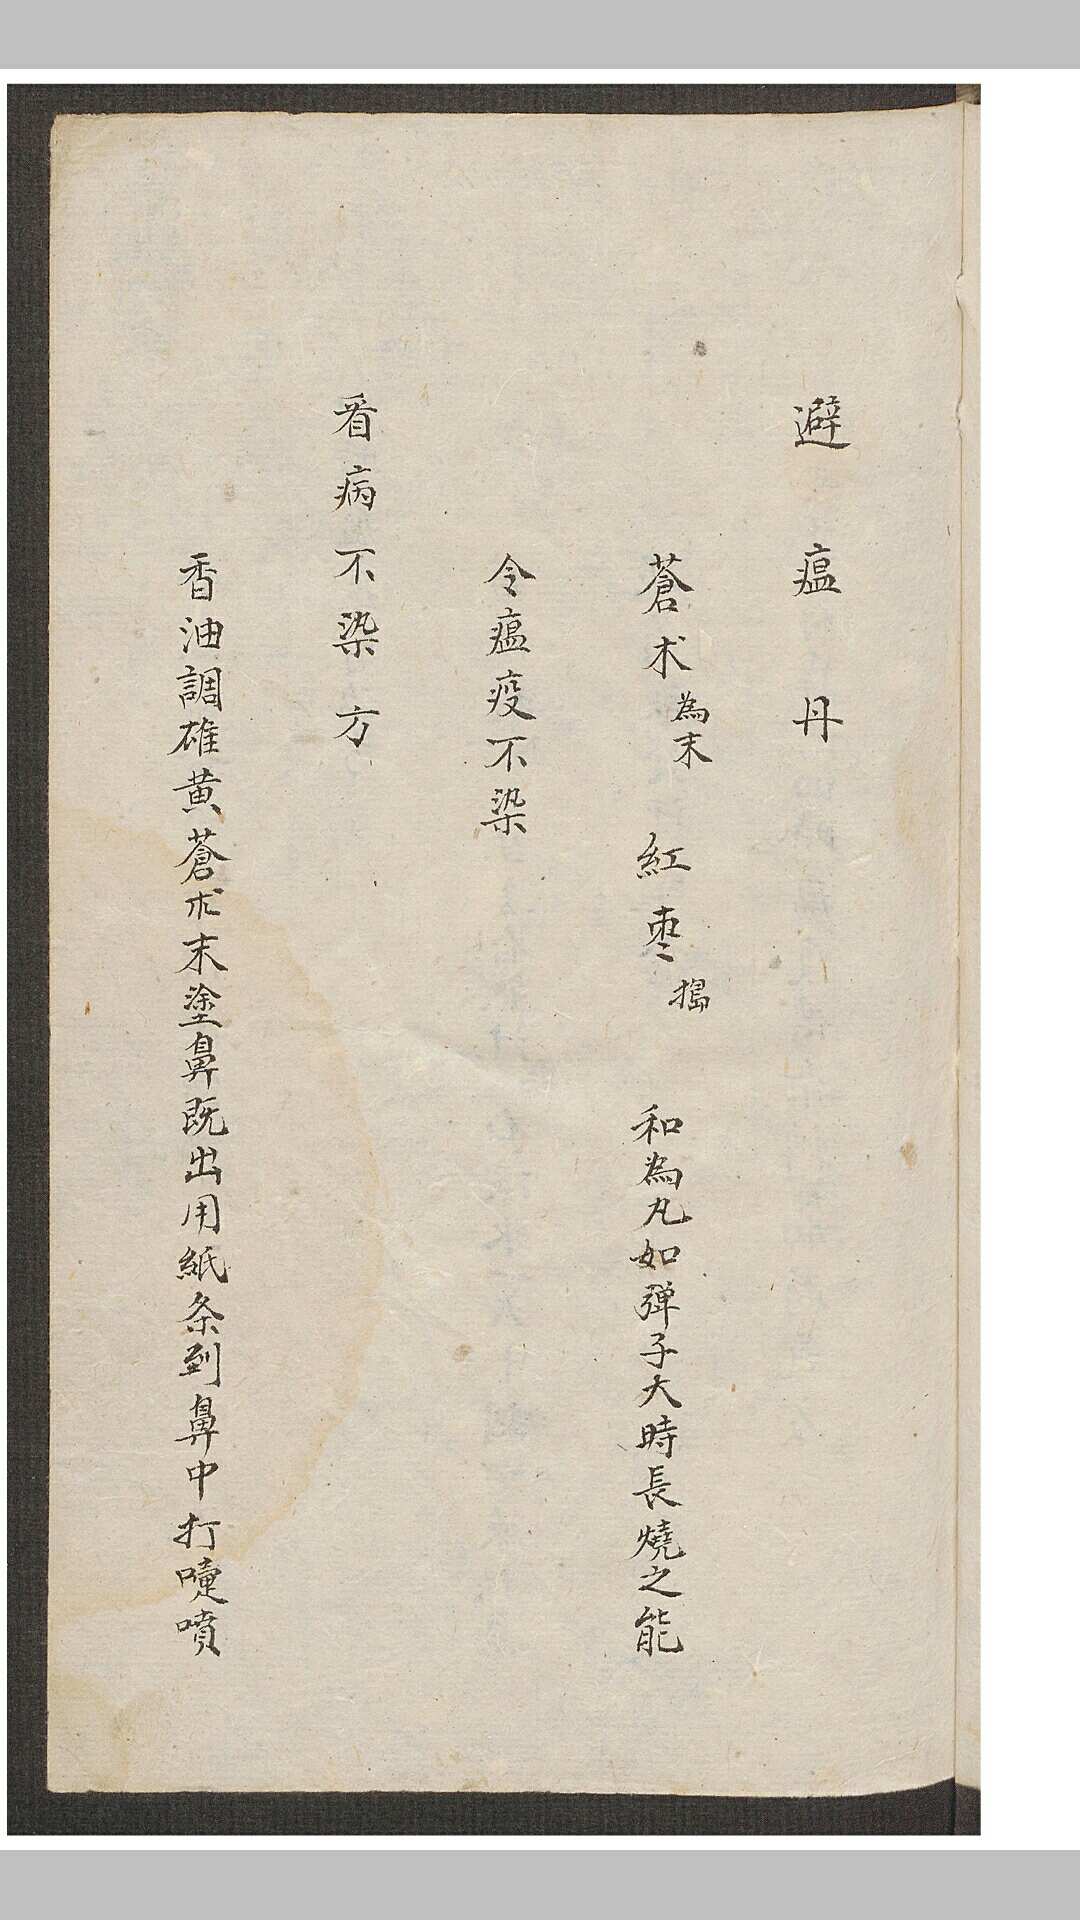 避瘟丹
蒼朮為末 紅棗搗 和為丸如彈子大時長燒之能
令瘟疫不染
看病不染方
香油調雄黄蒼朮末塗鼻既出用紙条到鼻中打嚏噴